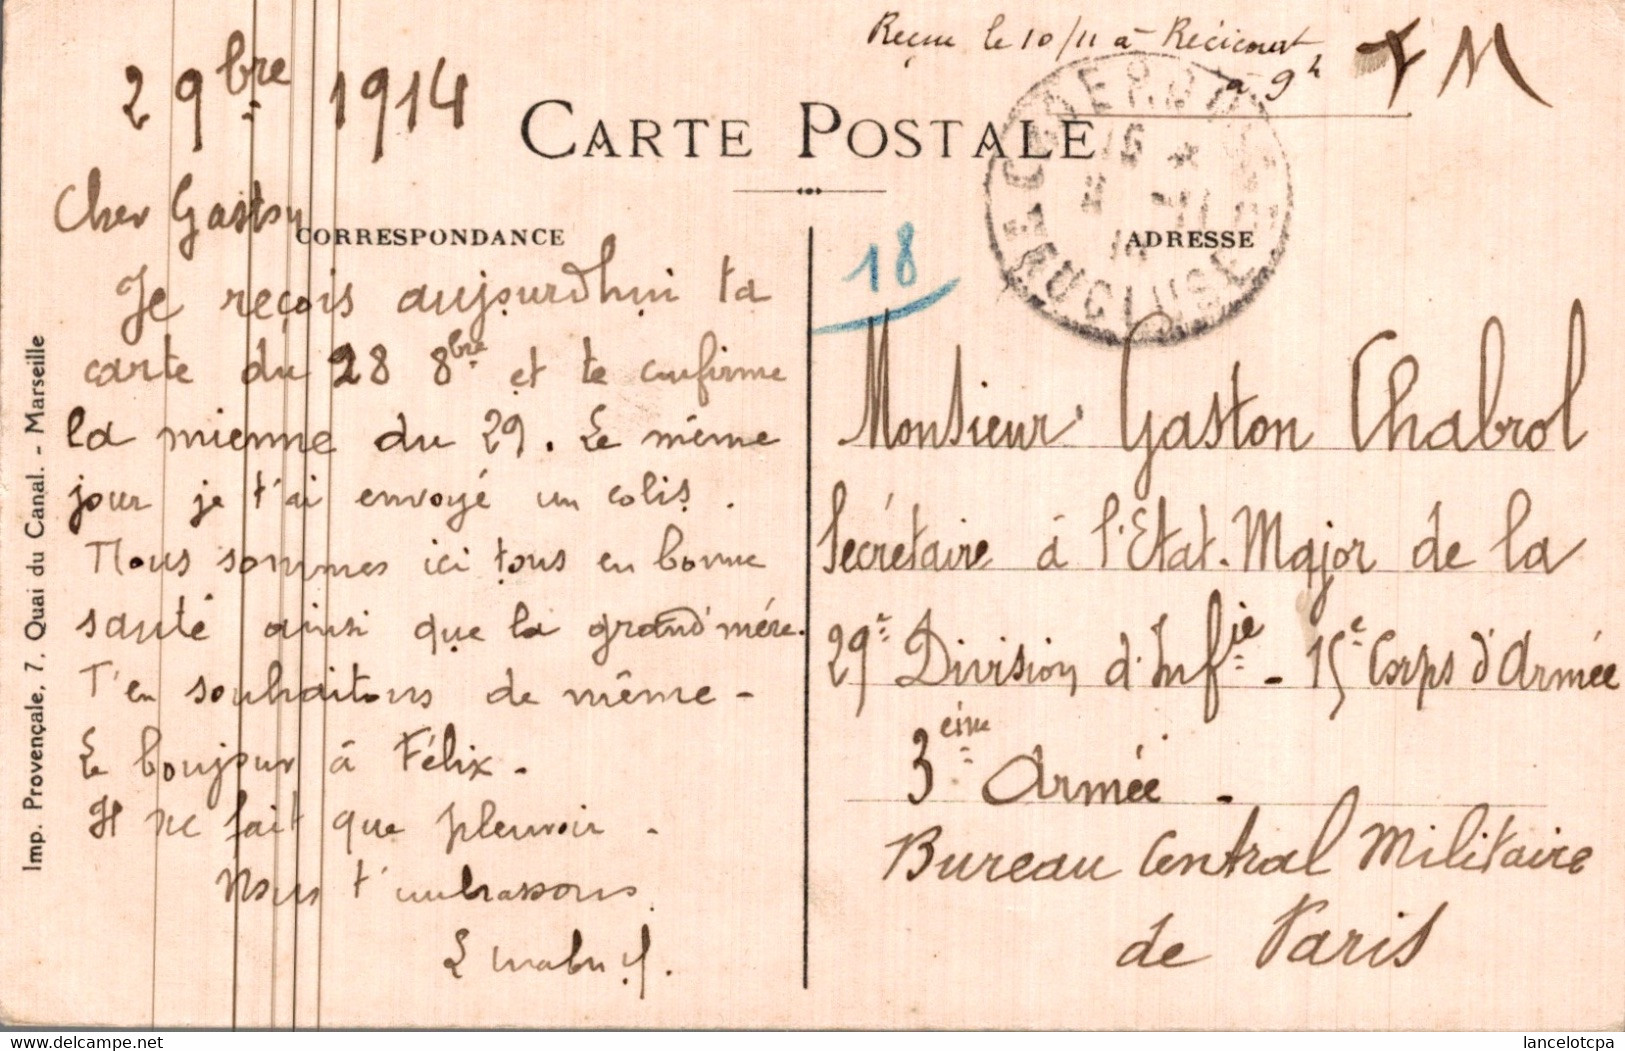 Reçue le 10/11 à Récicourt
à 9h
F M
2 9bre 1914
CARTE POSTALE
Cher Gaston
CORRESPONDANCE
ADRESSE
18
Je reçois aujourd'hui ta
carte du 28 8bre et te confirme
la mienne du 29. Le même
jour je t'ai envoyé un colis.
Nous sommes ici tous en bonne
santé ainsi que la grand'mère.
T'en souhaitons de même -
Le bonjour à Félix.
Il ne fait que pleuvoir.
Nous t'embrassons
Monsieur Gaston Chabrol
Secrétaire à l'Etat-Major de la
29e Division d'Infie - 15e Corps d'Armée
3ème Armée -
Bureau Central Militaire
de Paris
Imp. Provençale, 7, Quai du Canal. - Marseille
VAUCLUSE
delcampe.net
lancelotcpa